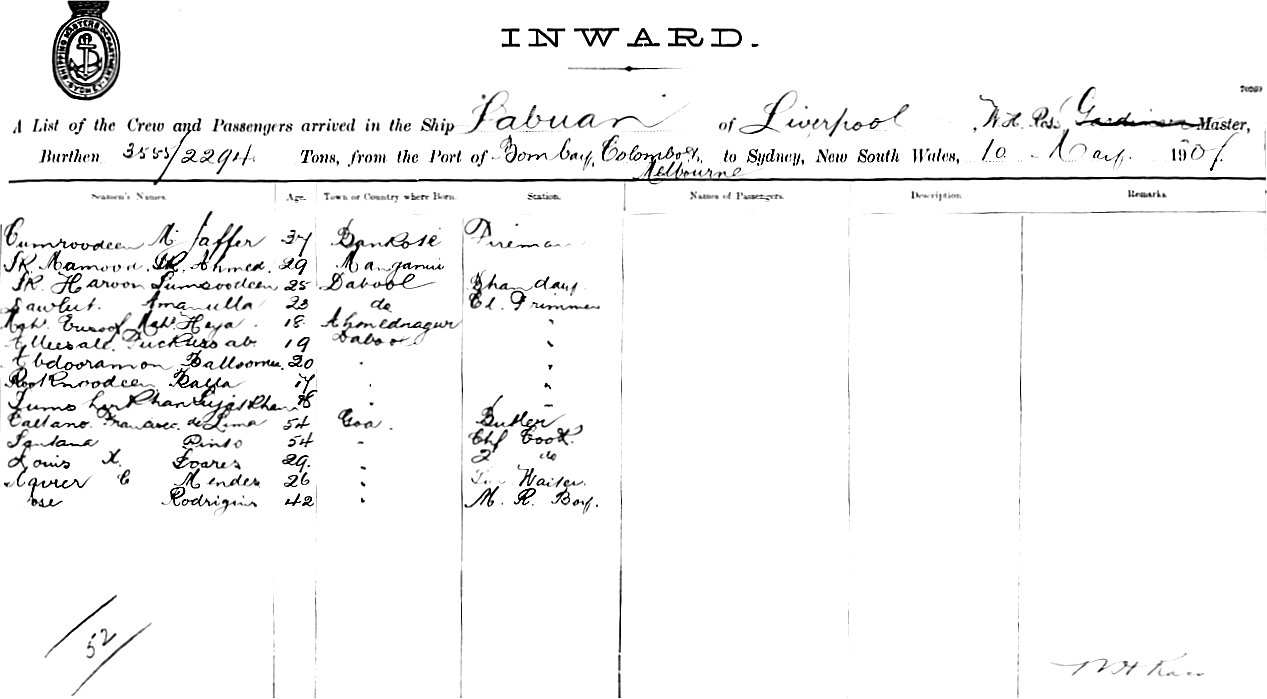 SHIPPING MASTER'S DEPARTMENT SYDNEY
INWARD.
70269
A List of the Crew and Passengers arrived in the Ship Labuan of Liverpool, W. H. Ross, Gardiner Master,
Burthen 3555/2294 Tons, from the Port of Bombay, Colombo & Melbourne to Sydney, New South Wales, 10 May 1907.
Seamen's Names. Age. Town or Country where Born. Station. Names of Passengers. Description. Remarks.
Cumroodeen M. Jaffer 37 Bankote Fireman
SK. Mamood SK. Ahmed. 29
SK. Haroon Sumsoodeen 25 Dabool Bhandary
Amanulla 23 do Cl. Trimmer
18 Ahmednagur "
19 Dabool "
Abdooramon 20 " "
17 " "
18 " "
Caetano Francisco de Lima 54 Goa. Butler
Santana Pinto 54 " Chf Cook.
Louis X. Soares 29. " 2 do
Xavier C Mendes 26 " Waiter.
Jose Rodrigues 42 " M. R. Boy.
52
W H Ross